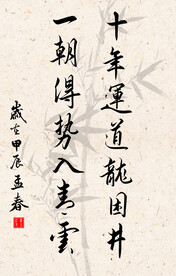 十年運道龍困井
一朝得勢入青雲
歲在甲辰孟春